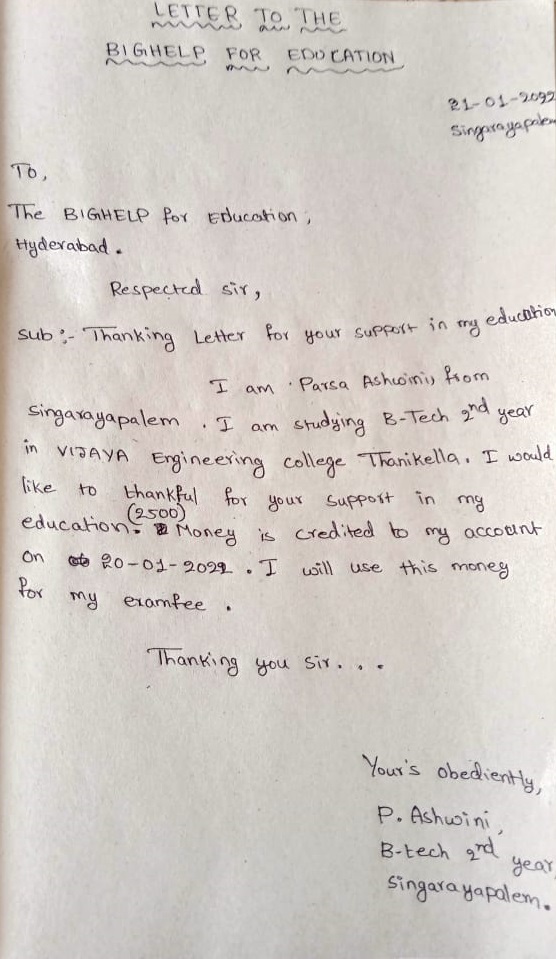 LETTER TO THE
BIGHELP FOR EDUCATION
21-01-2022
Singarayapalem
To,
The BIGHELP for Education,
Hyderabad.
Respected sir,
sub :- Thanking Letter for your support in my education
I am Parsa Ashwini, from
Singarayapalem . I am studying B-Tech 2nd year
in VIJAYA Engineering college Thanikella. I would
like to thankful for your support in my
(2500)
education. Money is credited to my account
on 20-01-2022 . I will use this money
for my examfee .
Thanking you sir. . .
Your's obediently,
P. Ashwini,
B-tech 2nd year
Singarayapalem.